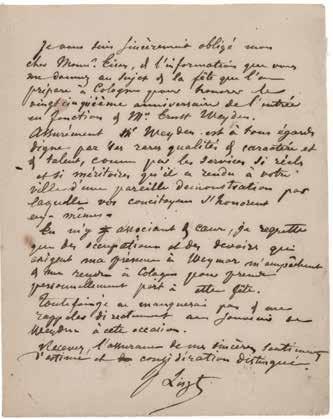 Je vous suis sincèrement obligé mon
cher Monsr. de l'information que vous
me donnez au sujet de la fête que l'on
prépare à Cologne pour honorer le
vingtcinquième anniversaire de l'entrée
en fonction de Mr. Ernst Weyden.
Assurément Mr. Weyden est à tous égards
digne par ses rares qualités de caractère et
de talent, comme par les services si réels
et si méritoires qu'il a rendu à votre
ville d'une pareille démonstration par
laquelle vos concitoyens s'honorent
eux-mêmes.
En m'y associant de cœur, je regrette
que des occupations et des devoirs qui
exigent ma présence à Weymar m'empêchent
de me rendre à Cologne pour prendre
personnellement part à cette fête.
Toutefois je ne manquerai pas de me
rappeler directement aux souvenirs de
Weyden à cette occasion.
Recevez, l'assurance de mes sincères sentiments
d'estime et de considération distinguée.
F. Liszt